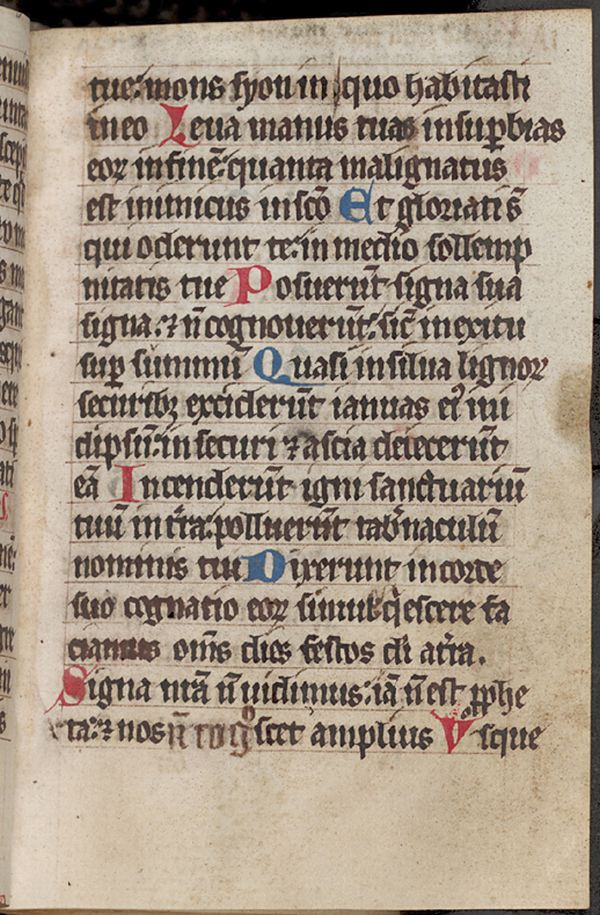 tue: mons syon in quo habitasti
in eo Leua manus tuas in sup̲bias
eoꝝ in finē: quanta malignatus
est inimicus in scō Et gloriati s̄
qui oderunt te: in medio sollemp
nitatis tue Posuerūt signa sua
signa: ⁊ n̄ cognouerūt: sic̄ in exitu
sup̲ summū Quasi in silua lignoꝝ
securibꝫ exciderūt ianuas eiꝰ in i
dipsū: in securi ⁊ ascia deiecerūt
eā Incenderūt igni sanctuariū
tuū in t̄ra: polluerūt tab̄naculū
nominis tui Dixerunt in corde
suo cognatio eoꝝ simul: q̄escere fa
ciamus om̄s dies festos di a t̄ra.
Signa nr̄a n̄ uidimus: iā n̄ est ꝓphe
ta: ⁊ nos n̄ cogͦscet amplius Vsque